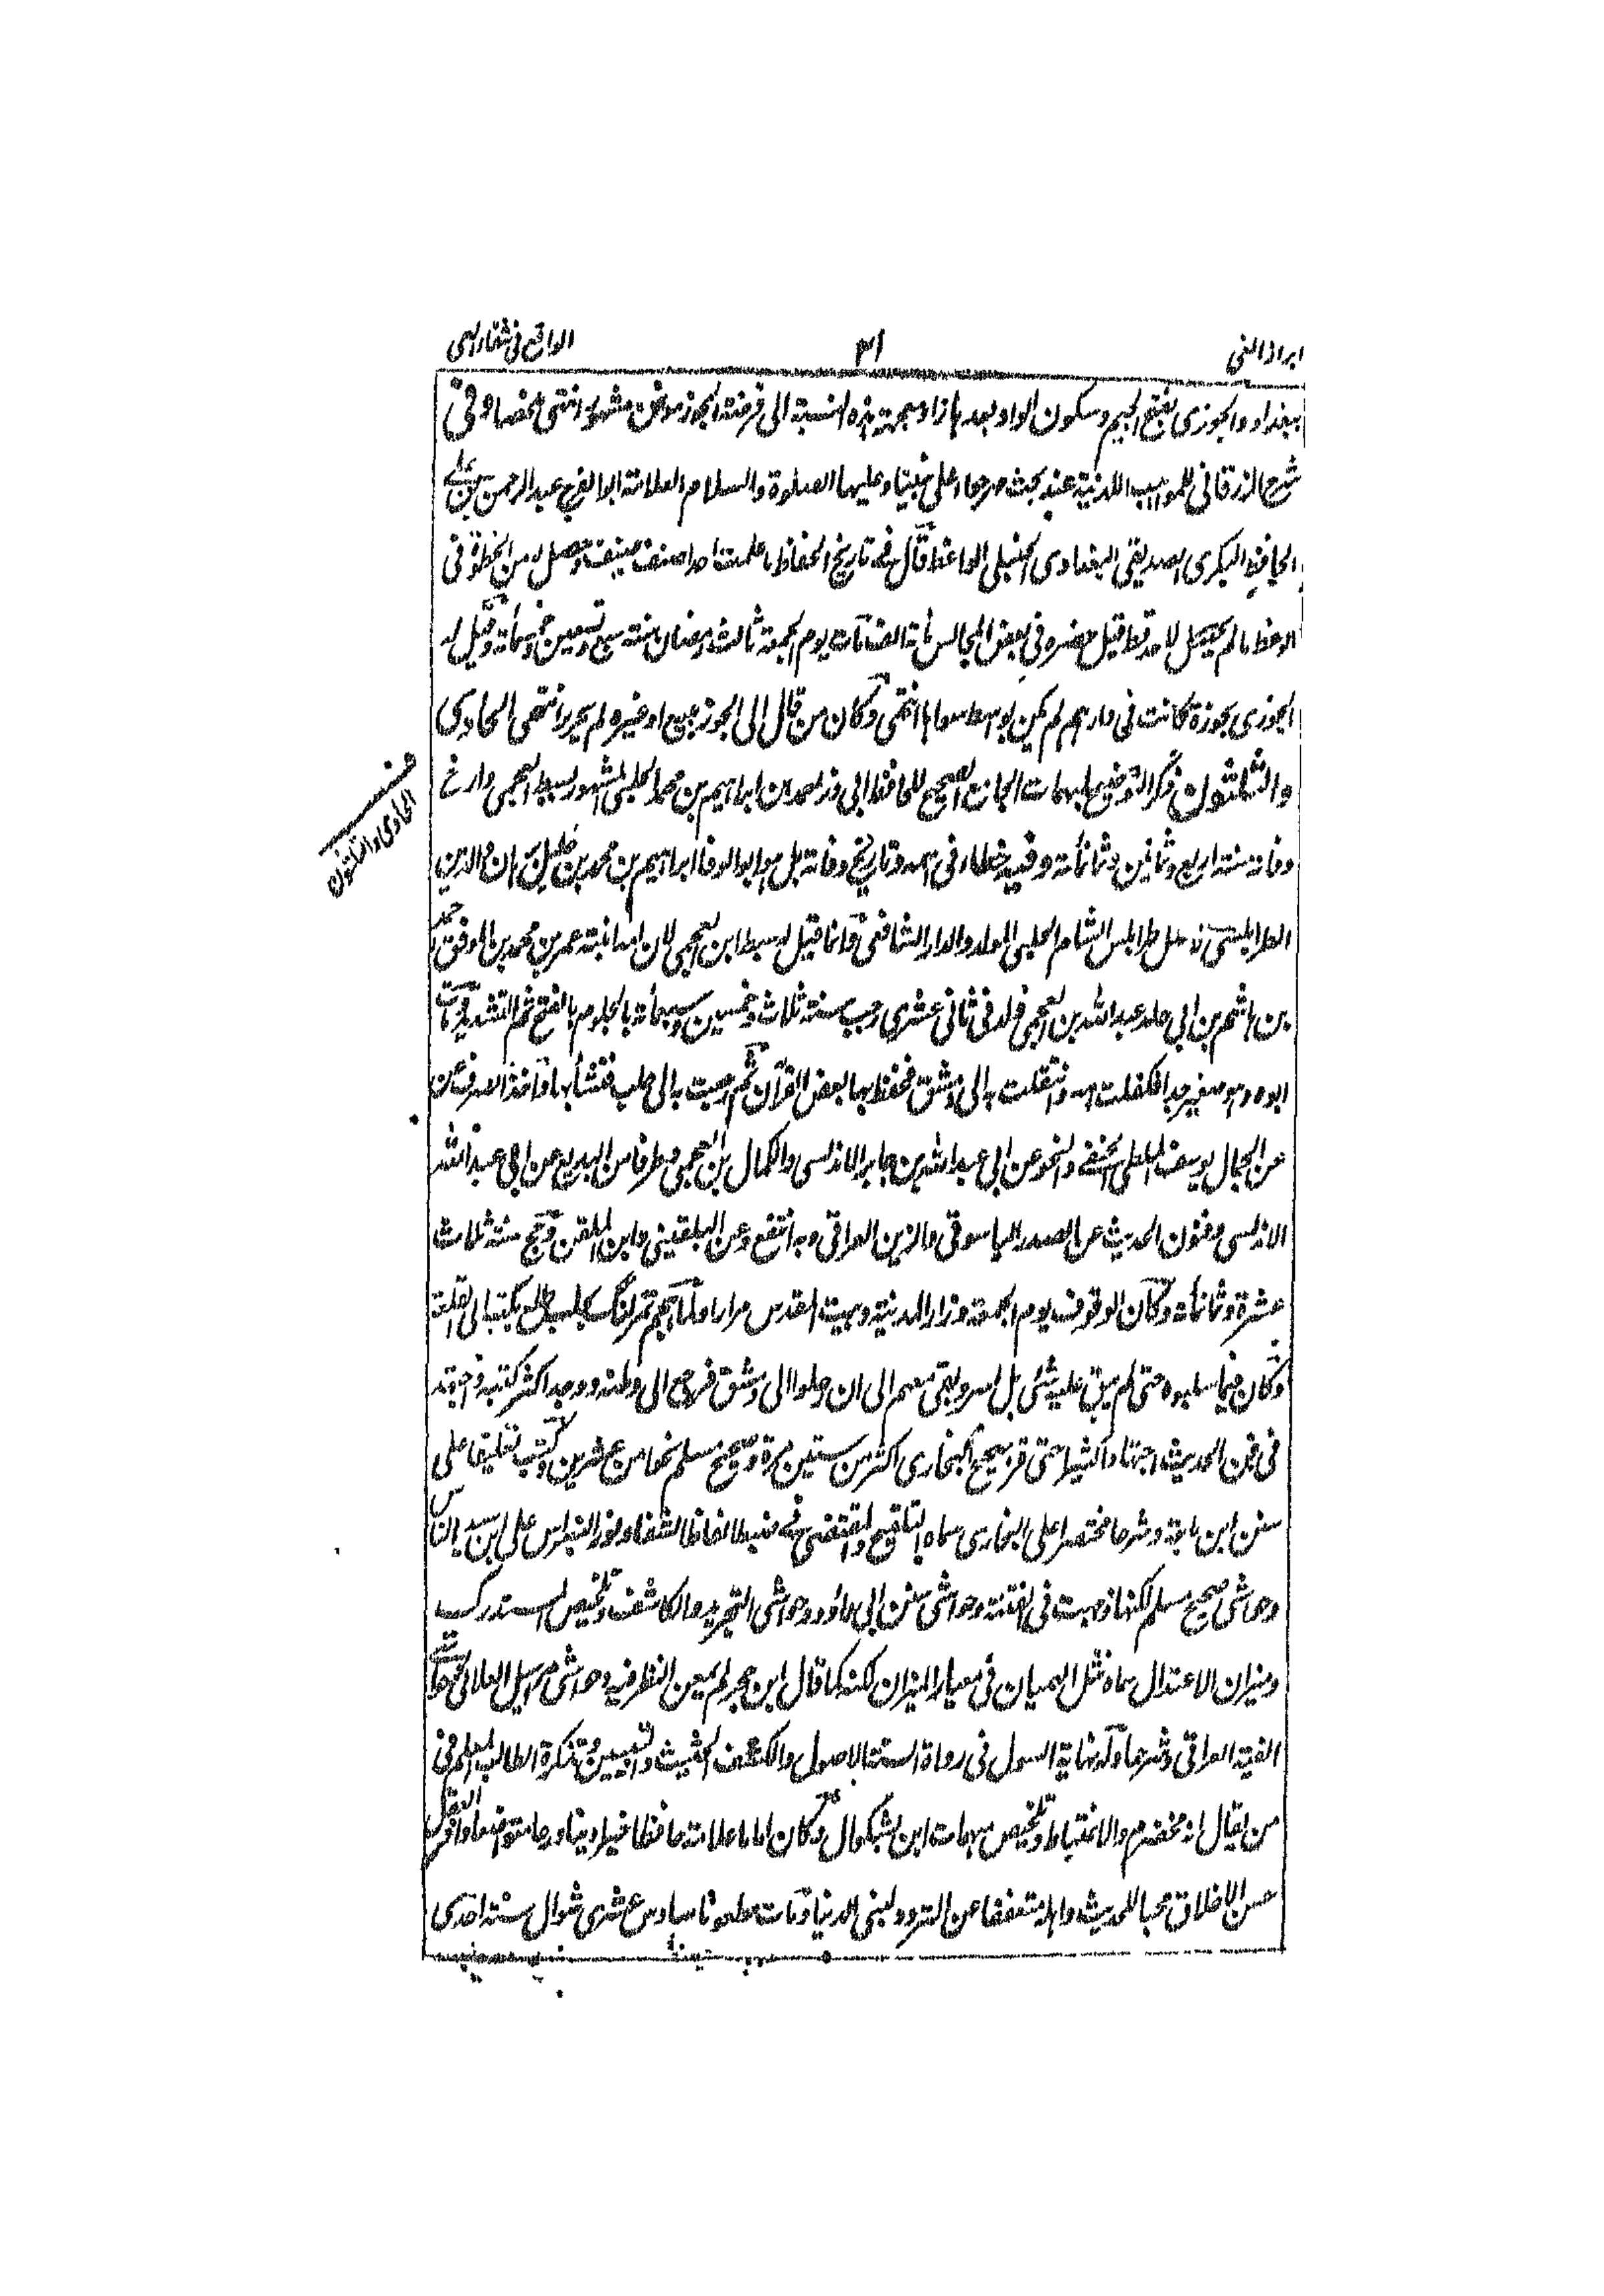 ابراز الغی ٣١ الواقع فی شفاء العی
ببغداد والجوزی بفتح الجیم وسکون الواو بعدها زاء معجمة هذه النسبة الی فرضة الجوز موضع مشهور انتهی ملخصا وفی
شرح الزرقانی للمواهب اللدنیة عند بحث علی نبینا وعلیها الصلوة والسلام العلامة ابو الفرج عبد الرحمن بن علی
الحافظ البکری الصدیقی البغدادی الحنبلی الواعظ قال فی تاریخ الحفاظ ما علمت احدا صنف ما صنف وحصل له من الحظوة فی
الوعظ ما لم یحصل لاحد قط قیل حضره فی بعض المجالس مائة الف مات یوم الجمعة ثالث رمضان سنة سبع وتسعین وخمسمائة وقیل له
الجوزی بجوزة کانت فی دارهم لم یکن بواسط سواها انتهی وکان من قال الی الجوز بیع او غیره لم یحرر انتهی الحادی
والثلثون ذکر التوضیح لمبهمات الجامع الصحیح للحافظ ابی ذر احمد بن ابراهیم بن محمد الحلبی المشهور بسبط العجمی وارخ
وفاته سنة اربع وثمانین وثمانمائة وفیه خطاء فی اسمه وتاریخ وفاته بل هو ابو الوفا ابراهیم بن محمد بن خلیل برهان الدین
الطرابلسی نسبة الی طرابلس الشام الحلبی المولد والدار الشافعی وانما قیل له سبط ابن العجمی لان امه ابنة عمر بن محمد بن الموفق احمد
بن هاشم بن ابی حامد عبد الله بن العجمی ولد فی ثانی عشری رجب سنة ثلاث وخمسین وسبعمائة بالجلوم بالفتح ثم التشدید ومات
ابوه وهو صغیر جدا فکفلته امه وانتقلت به الی دمشق فحفظ بها بعض القرآن ثم رجعت به الی حلب فنشأ بها واخذ الصرف
عن الجمال یوسف الملطی الحنفی والنحو عن ابی عبد الله بن جابر الاندلسی والکمال بن العجمی وطرفا من البدیع عن ابی عبد الله
الاندلسی وفنون الحدیث عن الصدر الیاسوفی والزین العراقی وبه انتفع وعن البلقینی وابن الملقن وحج سنة ثلاث
عشرة وثمانمائة وکان الوقوف یوم الجمعة وزار المدینة وبیت المقدس مرارا ولما هجم تمرلنک بحلب طلع بکتبه الی القلعة
وکان فیما سلبوه حتی لم یبق علیه شئ بل اسر وبقی معهم الی ان رحلوا الی دمشق فرجع الی وطنه ووجد اکثر کتبه واجتهد
فی فن الحدیث اجتهادا کثیرا حتی قرأ صحیح البخاری اکثر من ستین مرة وصحیح مسلم نحوا من عشرین وکتب تعلیقا علی
سنن ابن ماجة وشرحا مختصرا علی البخاری سماه التلقیح والمقتفی فی ضبط الفاظ الشفا ونور النبراس علی ابن سید الناس
وحواشی صحیح مسلم لکنها ذهبت فی الفتنة وحواشی سنن ابی داود وحواشی التجرید والکاشف وتلخیص المستدرک
ومیزان الاعتدال سماه نثل الهمیان فی معیار المیزان لکنه کما قال ابن حجر لم یمعن النظر فیه وحواشی مراسیل العلائی
الفیة العراقی وشرحها وله نهایة السول فی رواة الستة الاصول والکشف الحثیث والتبیین وتذکرة الطالب المعلم فی
من یقال انه مخضرم والاغتباط وتلخیص مبهمات ابن بشکوال وکان اماما علامة حافظا خیرا دینا ورعا متواضعا وافر العقل
حسن الاخلاق محبا للحدیث واهله متعففا عن التردد لبنی الدنیا ومات مطعونا سادس عشری شوال سنة احدی
الحادی والثلثون